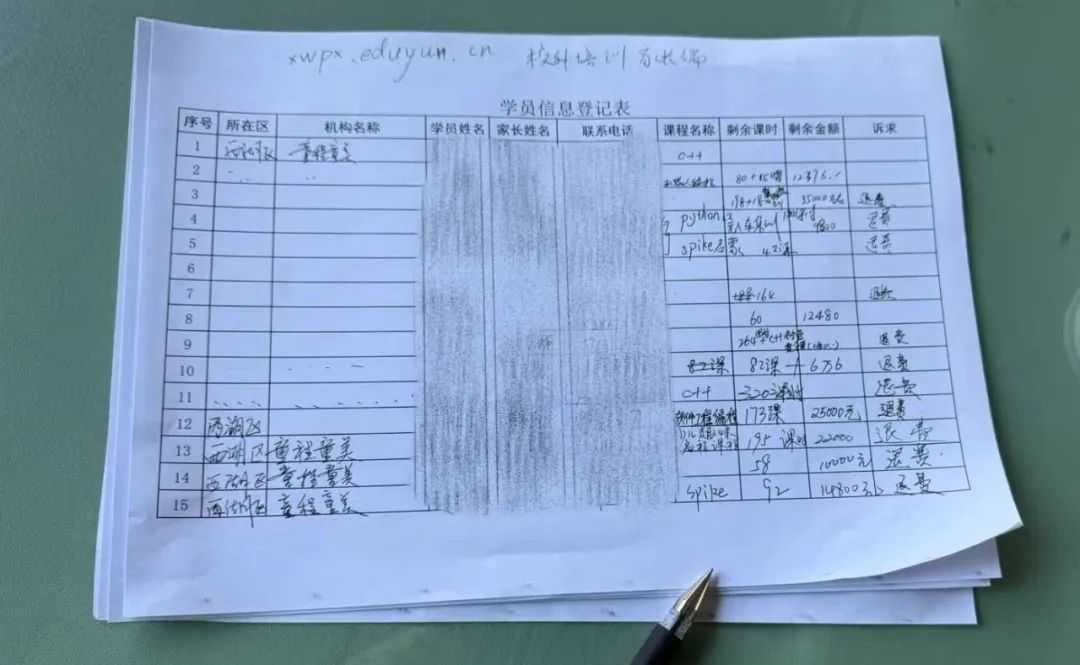 xwpx.eduyun.cn 校外培训家长端
学员信息登记表
序号 所在区 机构名称 学员姓名 家长姓名 联系电话 课程名称 剩余课时 剩余金额 诉求
1 西湖区 童程童美 C++
2 80+15
3 35000元 退费
4 python 退费
5 spike 42课 退费
6
7 164 退款
8 60 12480
9 264 退费
10 82课 82课 6万6 退费
11 C++ 320课时 退费
12 西湖区 软件工程编程 173课 25000元 退费
13 西湖区 童程童美 195课时 22000 退费
14 西湖区 童程童美 58 10000元 退费
15 西湖区 童程童美 spike 92 14800元 退费